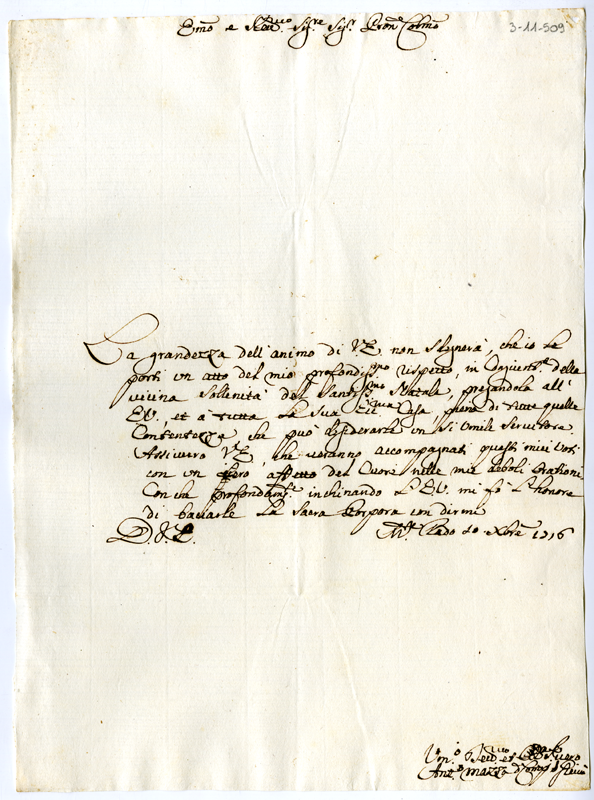 3-11-509
Emo e Sig.re Sig.r Pron.e Colmo
La grandezza dell'animo di V.E. non sdegnerà, che io le
porti un atto del mio profondiss.mo rispetto, in della
vicina sollenità del Santiss.mo Natale, pregandola all'
E.V., et a tutta la sua Casa, piena di tutte quelle
Contentezza, che può desiderarle un si umile servitore
Assicuro V.E., che veranno accompagnati questi miei voti
con un vero affetto del Cuore nelle mie deboli orationi
Con che profondam.te inchinando l'E.V. mi fò l'honore
di baciarle la sacra Porpora con dirmi
D.V.E. 10 Xbre 1716
Um.o et
Ant.o